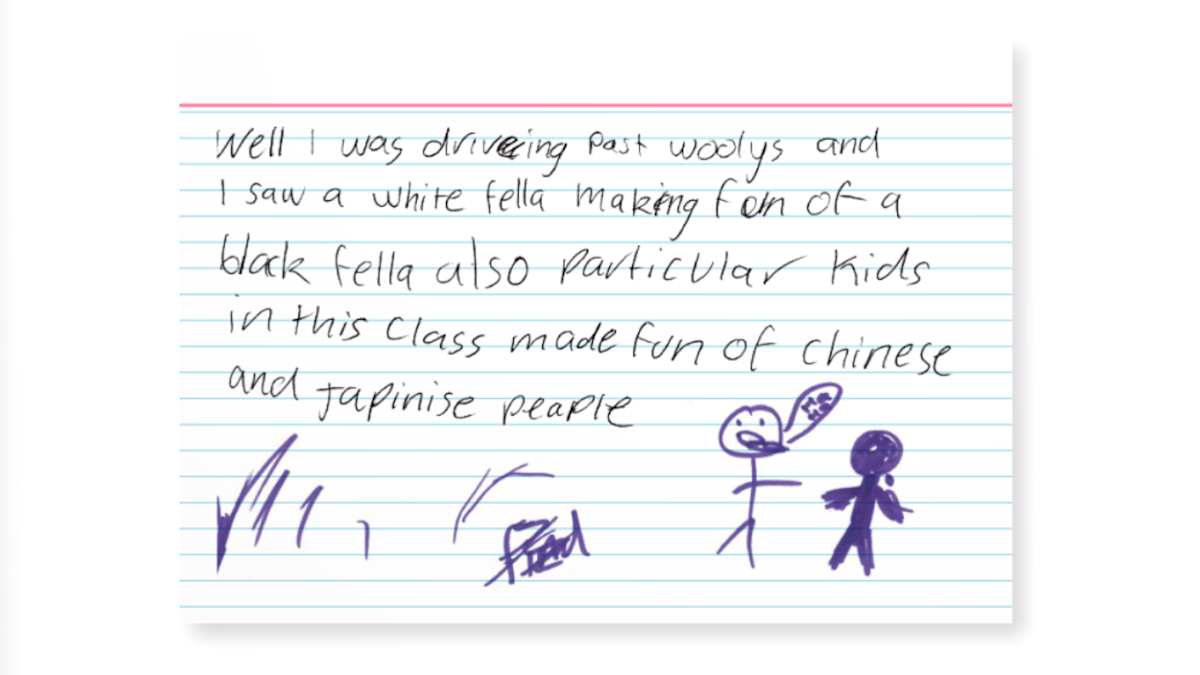 Well I was driveing past woolys and
I saw a white fella making fun of a
black fella also particular kids
in this class made fun of chinese
and Japinise peaple
HA HA